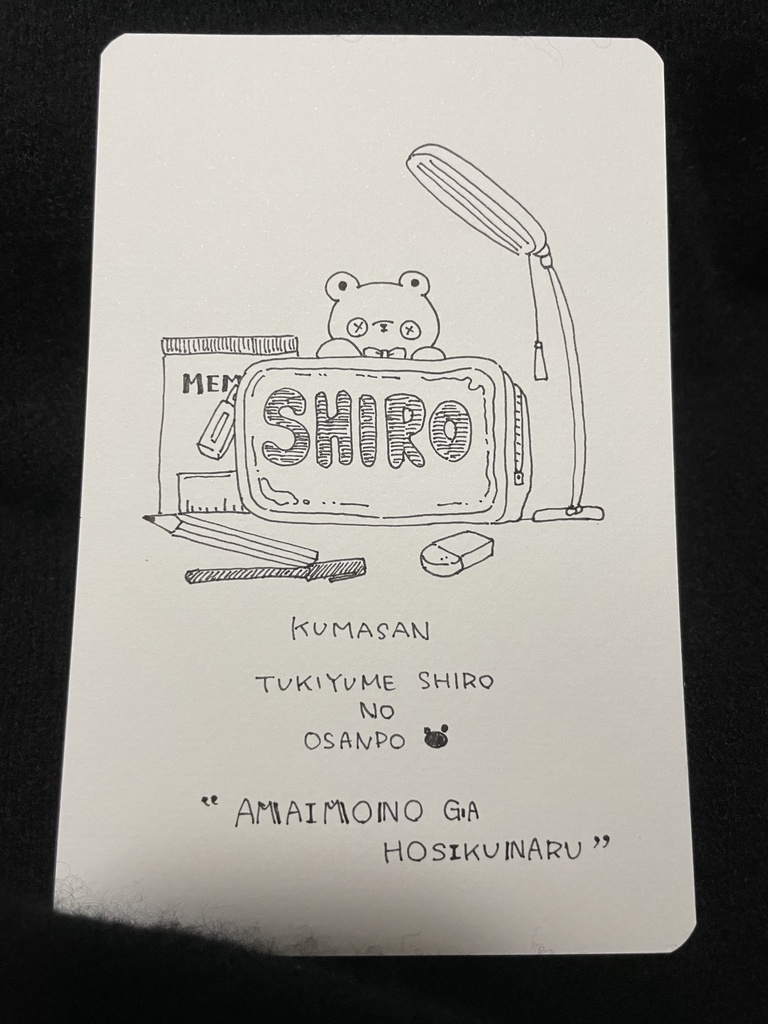 MEM
SHIRO
KUMASAN
TUKIYUME SHIRO
NO
OSANPO
“ AMAIMONO GA
HOSIKUNARU ”